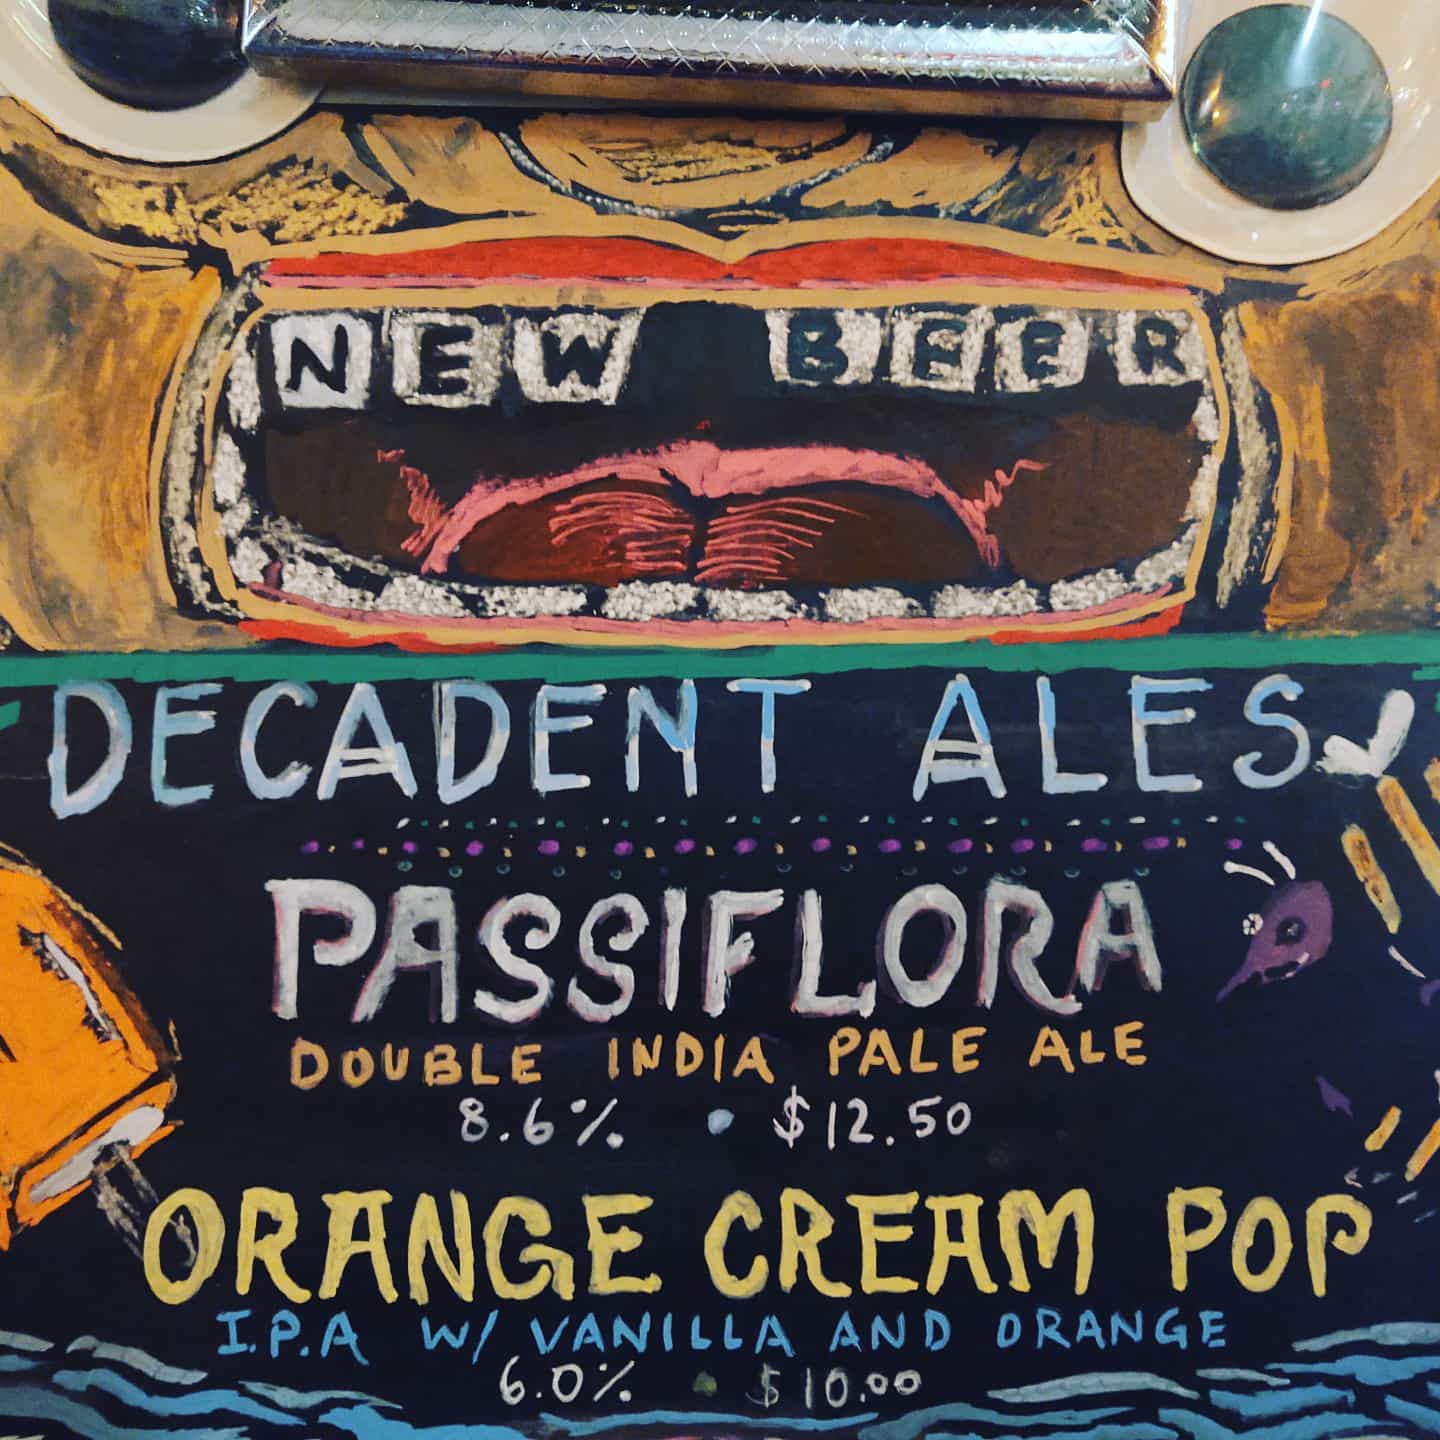 NEW BEER
DECADENT ALES
PASSIFLORA
DOUBLE INDIA PALE ALE
8.6% • $12.50
ORANGE CREAM POP
I.P.A W/ VANILLA AND ORANGE
6.0% • $10.00